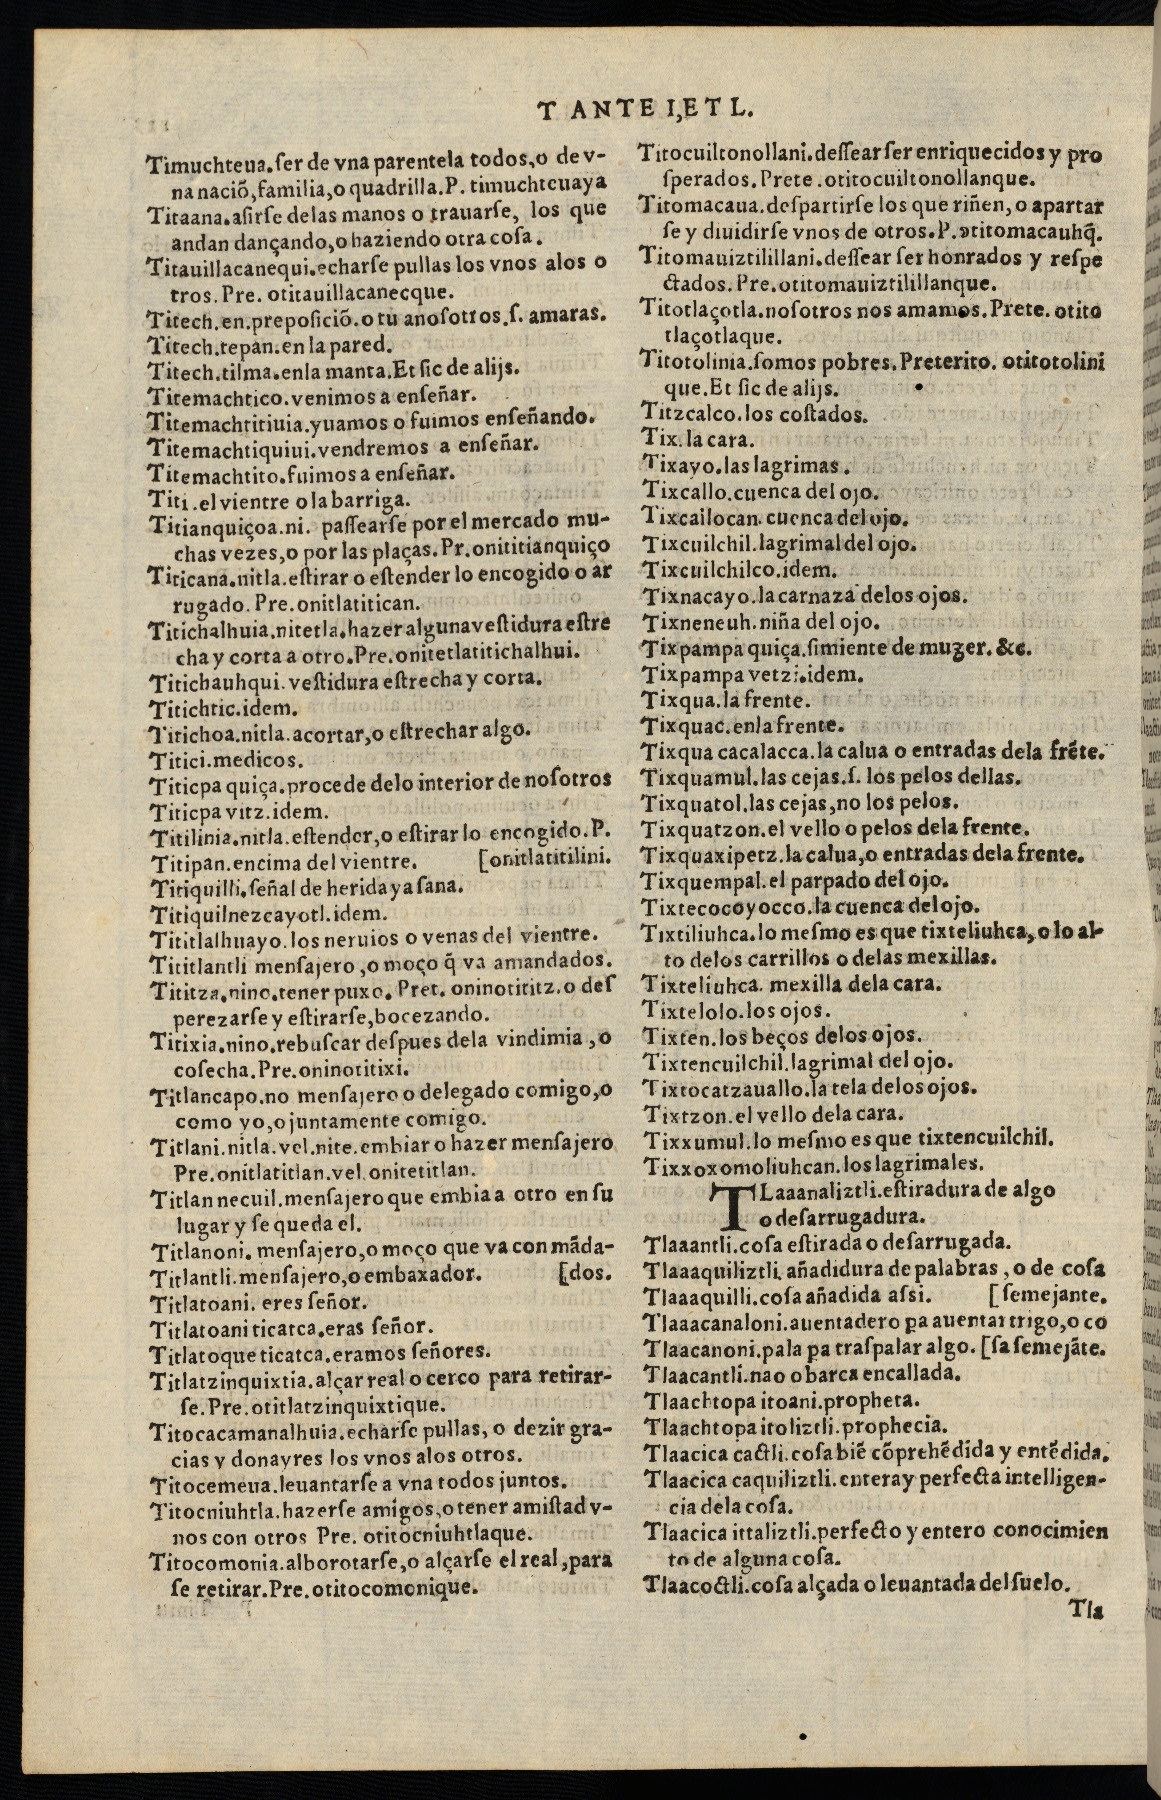 T ANTE I, ET L.
Timuchteua.ſer de vna parentela todos,o de v-
na nació,familia,o quadrilla.P. timuchteuaya
Titaana.aſirſe delas manos o trauarſe, los que
andan dançando,o haziendo otra coſa.
Titauillacanequi.echarſe pullas los vnos alos o
tros.Pre. otitauillacanecque.
Titech.en.prepoſició.o tu anoſotros.ſ. amaras.
Titech.tepan.en la pared.
Titech.tilma.enla manta.Et ſic de alijs.
Titemachtico.venimos a enſeñar.
Titemachtitiuia.yuamos o fuimos enſeñando.
Titemachtiquiui.vendremos a enſeñar.
Titemachtito.fuimos a enſeñar.
Titi.el vientre o la barriga.
Titianquiçoa.ni. paſſearſe por el mercado mu-
chas vezes,o por las plaças.Pr.onititianquiço
Titicana.nitla.eſtirar o eſtender lo encogido o ar
rugado.Pre.onitlatitican.
Titichalhuia.nitetla.hazer alguna veſtidura eſtre
cha y corta a otro.Pre.onitetlatitichalhui.
Titichauhqui.veſtidura eſtrecha y corta.
Titichtic.idem.
Titichoa.nitla.acortar,o eſtrechar algo.
Titici.medicos.
Titicpa quiça.procede delo interior de noſotros
Titicpa vitz.idem.
Titilinia.nitla.eſtender,o eſtirar lo encogido.P.
Titipan.encima del vientre. [onitlatitilini.
Titiquilli.ſeñal de herida ya ſana.
Titiquilnezcayotl.idem.
Tititlalhuayo.los neruios o venas del vientre.
Tititlantli menſajero,o moço q̃ va amandados.
Tititza.nino.tener puxo. Pret. oninotititz.o deſ
perezarſe y eſtirarſe,bocezando.
Titixia.nino.rebuſcar deſpues dela vindimia,o
coſecha.Pre.oninotitixi.
Titlancapo.no menſajero o delegado comigo,o
como yo,o juntamente comigo.
Titlani.nitla.vel.nite.embiar o hazer menſajero
Pre.onitlatitlan.vel onitetitlan.
Titlan necuil.menſajero que embia a otro en ſu
lugar y ſe queda el.
Titlanoni. menſajero,o moço que va con mãda-
Titlantli.menſajero,o embaxador. [dos.
Titlatoani. eres ſeñor.
Titlatoani ticatca.eras ſeñor.
Titlatoque ticatca.eramos ſeñores.
Titlatzinquixtia.alçar real o cerco para retirar-
ſe.Pre.otitlatzinquixtique.
Titocacamanalhuia.echarſe pullas, o dezir gra-
cias y donayres los vnos alos otros.
Titocemeua.leuantarſe a vna todos juntos.
Titocniuhtla.hazerſe amigos,o tener amiſtad v-
nos con otros Pre. otitocniuhtlaque.
Titocomonia.alborotarſe,o alçarſe el real,para
ſe retirar.Pre.otitocomonique.
Titocuiltonollani.deſſear ſer enriquecidos y pro
ſperados.Prete.otitocuiltonollanque.
Titomacaua.deſpartirſe los que riñen,o apartar
ſe y diuidirſe vnos de otros.P.otitomacauhq̃.
Titomauiztilillani.deſſear ſer honrados y reſpe
ctados.Pre.otitomauiztilillanque.
Titotlaçotla.noſotros nos amamos.Prete. otito
tlaçotlaque.
Titotolinia.ſomos pobres.Preterito. otitotolini
que.Et ſic de alijs.
Titzcalco.los coſtados.
Tix.la cara.
Tixayo.las lagrimas.
Tixcallo.cuenca del ojo.
Tixcallocan.cuenca del ojo.
Tixcuilchil.lagrimal del ojo.
Tixcuilchilco.idem.
Tixnacayo.la carnaza delos ojos.
Tixneneuh.niña del ojo.
Tixpampa quiça.ſimiente de muger. &c.
Tixpampa vetzi.idem.
Tixqua.la frente.
Tixquac.enla frente.
Tixqua cacalacca.la calua o entradas dela frẽte.
Tixquamul.las cejas.ſ. los pelos dellas.
Tixquatol.las cejas,no los pelos.
Tixquatzon.el vello o pelos dela frente.
Tixquaxipetz.la calua,o entradas dela frente.
Tixquempal.el parpado del ojo.
Tixtecocoyocco.la cuenca del ojo.
Tixtiliuhca.lo meſmo es que tixteliuhca,o lo al-
to delos carrillos o delas mexillas.
Tixteliuhca. mexilla dela cara.
Tixtelolo.los ojos.
Tixten.los beços delos ojos.
Tixtencuilchil.lagrimal del ojo.
Tixtocatzauallo.la tela delos ojos.
Tixtzon.el vello dela cara.
Tixxumul.lo meſmo es que tixtencuilchil.
Tixxoxomoliuhcan.los lagrimales.
TLaaanaliztli.eſtiradura de algo
o deſarrugadura.
Tlaaantli.coſa eſtirada o deſarrugada.
Tlaaaquiliztli.añadidura de palabras,o de coſa
Tlaaaquilli.coſa añadida aſsi. [ſemejante.
Tlaaacanaloni.auentadero pa auentar trigo,o co
Tlaacanoni.pala pa traſpalar algo. [ſa ſemejãte.
Tlaacantli.nao o barca encallada.
Tlaachtopa itoani.propheta.
Tlaachtopa itoliztli.prophecia.
Tlaacica cactli.coſa biẽ cõprehẽdida y entẽdida.
Tlaacica caquiliztli.entera y perfecta intelligen-
cia dela coſa.
Tlaacica ittaliztli.perfecto y entero conocimien
to de alguna coſa.
Tlaacoctli.coſa alçada o leuantada del ſuelo.
Tla